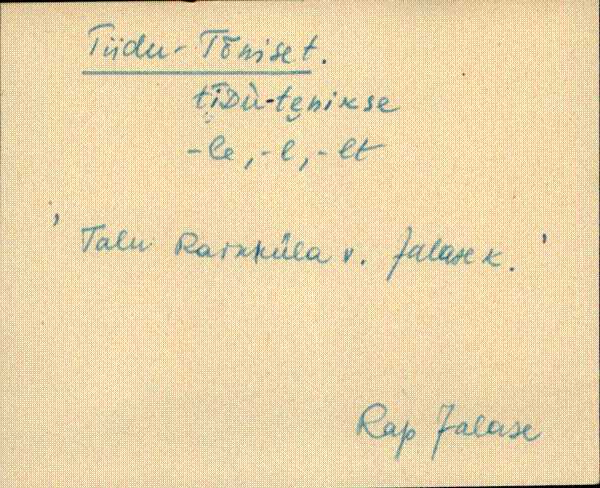 Tiidu-Tõniset.
tīDù-tęnikse
-le, -l, -lt
' Talu Raikküla v. Jalase k. '
Rap Jalase